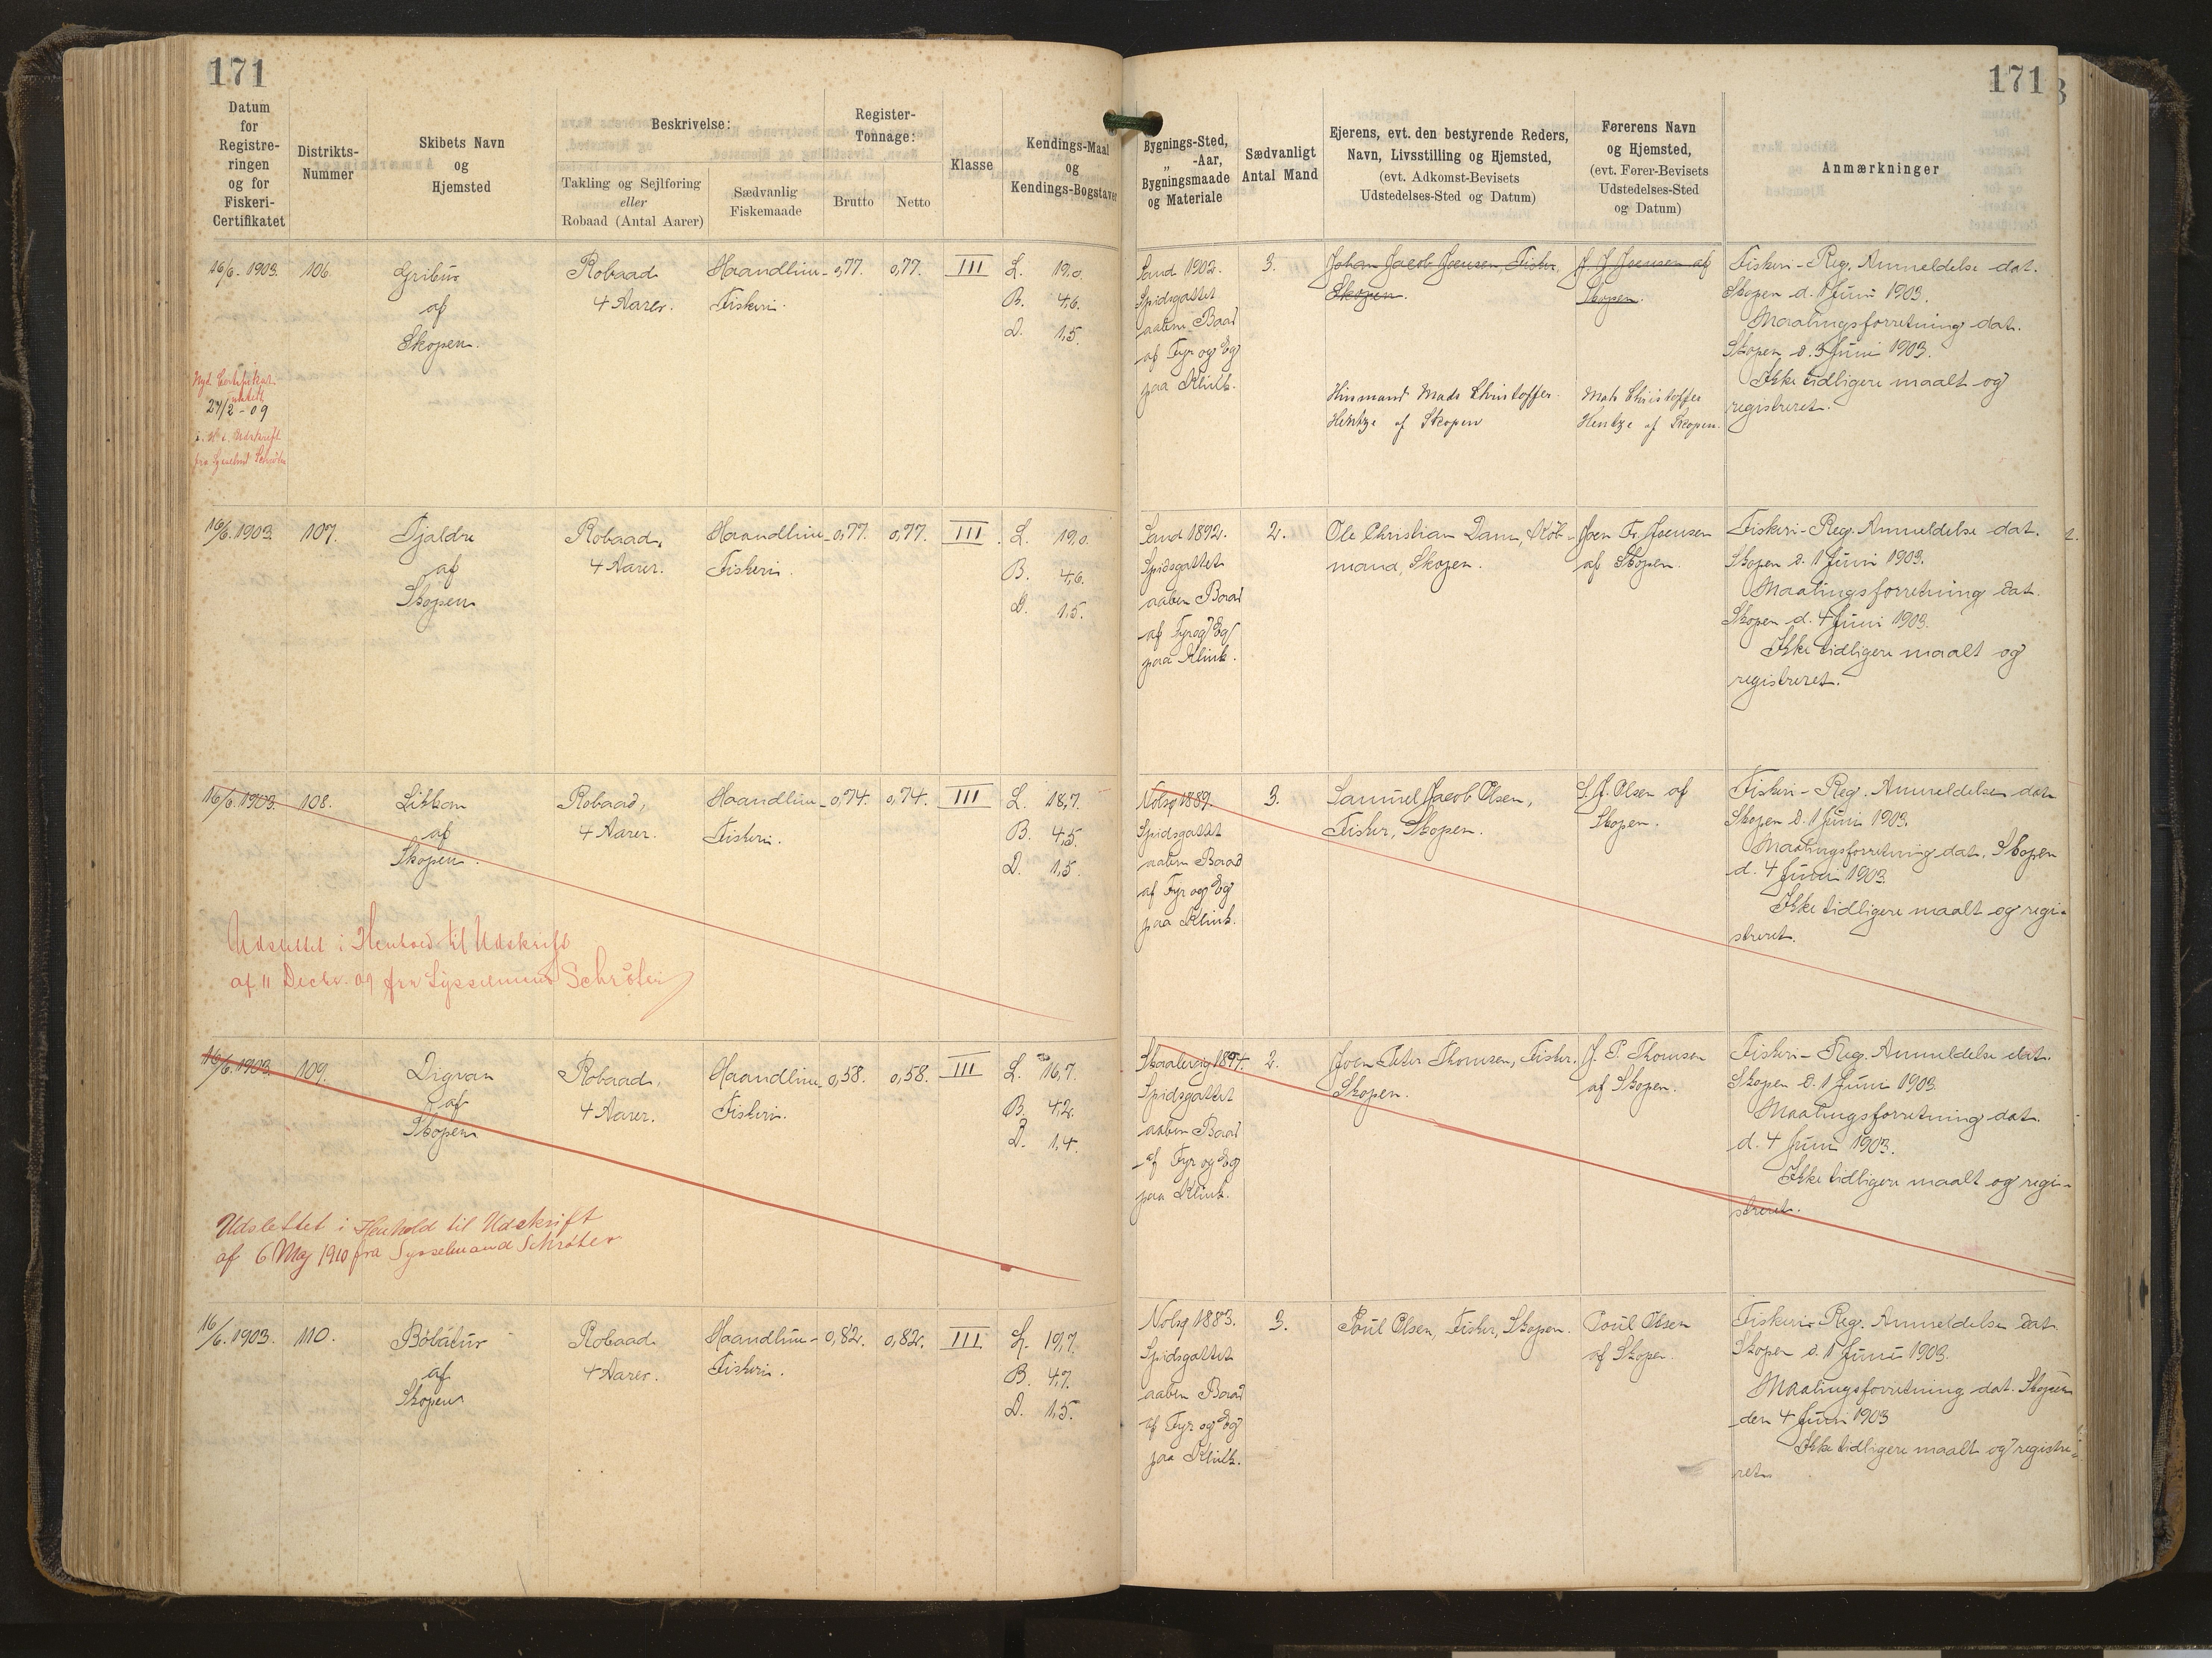 171
171
Datum
for
Registre-
ringen
og for
Fiskeri-
Certifikatet
Distrikts-
Nummer
Skibets Navn
og
Hjemsted
Beskrivelse:
Takling og Sejlføring
eller
Robaad (Antal Aarer)
Sædvanlig
Fiskemaade
Register-
Tonnage:
Brutto
Netto
Klasse
Kendings-Maal
og
Kendings-Bogstaver
Bygnings-Sted,
„ -Aar,
Bygningsmaade
og Materiale
Sædvanligt
Antal Mand
Ejerens, evt. den bestyrende Reders,
Navn, Livsstilling og Hjemsted,
(evt. Adkomst-Bevisets
Udstedelses-Sted og Datum)
Førerens Navn
og Hjemsted,
(evt. Fører-Bevisets
Udstedelses-Sted
og Datum)
Anmærkninger
16/6. 1903.
106.
Gribur
af
Skopen.
Robaad
4 Aarer.
Haandline-
Fiskeri.
0,77.
0,77.
III
L. 19,0
B. 4,6.
D. 1,5.
Sand 1902.
Spidsgattet
aaben Baad
af Fyr og Eg
paa Klink.
3.
Johan Jacob Joensen, Fisker,
Skopen.
J. J. Joensen af
Skopen.
Hinmand Mads Christoffer
Hentze af Skopen
Mads Christoffer
Hentze af Skopen.
Fiskeri-Reg. Anmeldelse dat.
Skopen d. 1 Juni 1903.
Maalingsforretning dat.
Skopen d. 3 Juni 1903.
Ikke tidligere maalt og
registreret.
Nyt Certifikat
udstedt
27/2 - 09
Udskrift
fra Sysselmd Schrøter
16/6. 1903.
107.
Tjaldre
af
Skopen
Robaad,
4 Aarer.
Haandline-
Fiskeri.
0,77.
0,77.
III
L. 19,0.
B. 4,6.
D. 1,5.
Sand 1892.
Spidsgattet
aaben Baad
af Fyr og Eg
paa Klink.
2.
Ole Christian Dam, Køb-
mand, Skopen.
Joen Fr. Joensen
af Skopen.
Fiskeri-Reg. Anmeldelse dat.
Skopen d. 1 Juni 1903.
Maalingsforretning dat.
Skopen d. 4 Juni 1903.
Ikke tidligere maalt og
registreret.
16/6. 1903.
108.
af
Skopen.
Robaad,
4 Aarer.
Haandline-
Fiskeri.
0,74.
0,74.
III
L. 18,7.
B. 4,5.
D. 1,5.
Nolsø 1889.
Spidsgattet
aaben Baad
af Fyr og Eg
paa Klink.
3.
Samuel Jacob Olsen,
Fisker, Skopen.
S. J. Olsen af
Skopen.
Fiskeri-Reg. Anmeldelse dat
Skopen d. 1 Juni 1903.
Maalingsforretning dat. Skopen
d. 4 Juni 1903.
Ikke tidligere maalt og regi-
streret.
Udslettet i Henhold til Udskrift
af 11 Decbr. 09 fra Sysselmand Schrøter
16/6. 1903.
109.
Digvan
af
Skopen
Robaad,
4 Aarer.
Haandline-
Fiskeri.
0,58.
0,58.
III
L. 16,7.
B. 4,2.
D. 1,4.
Skaalevig 1897.
Spidsgattet
aaben Baad
af Fyr og Eg
paa Klink.
2.
Joen Peter Thomsen, Fisker.
Skopen.
J. P. Thomsen
af Skopen.
Fiskeri-Reg. Anmeldelse dat.
Skopen d. 1 Juni 1903.
Maalingsforretning dat.
d. 4 Juni 1903.
Ikke tidligere maalt og regi-
streret.
Udslettet i Henhold til Udskrift
af 6 Maj 1910 fra Sysselmand Schrøter
16/6. 1903.
110.
Bóbátur
af
Skopen
Robaad
4 Aarer.
Haandline-
Fiskeri.
0,82.
0,82.
III
L. 19,7.
B. 4,7.
D. 1,5.
Nolsø 1883.
Spidsgattet
aaben Baad
af Fyr og Eg
paa Klink.
3.
Poul Olsen, Fisker, Skopen.
Poul Olsen
af Skopen.
Fiskeri-Reg. Anmeldelse dat.
Skopen d. 1 Juni 1903.
Maalingsforretning dat. Skopen
den 4 Juni 1903
Ikke tidligere maalt og registre-
ret.